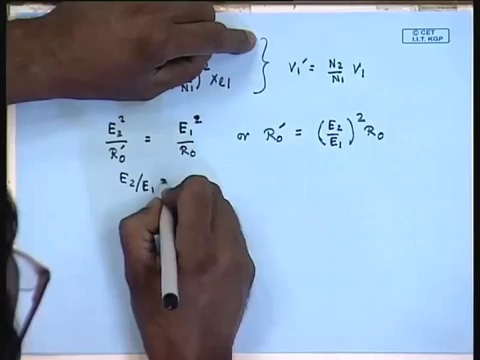 © CET
I.I.T. KGP
N₁)² Xe1 } V₁' = N₂/N₁ V₁
E₂²/R₀' = E₁²/R₀ or R₀' = (E₂/E₁)² R₀
E₂/E₁ =